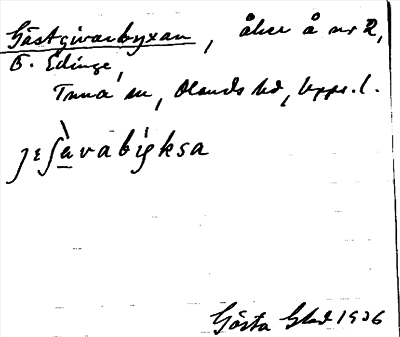 Gästgivarbyxan, åker å nr 2,
Ö. Edinge,
Tuna sn, Olands hd, Upps. l.
ȷɛʃàvabiɟksa
Gösta Gbd 1936